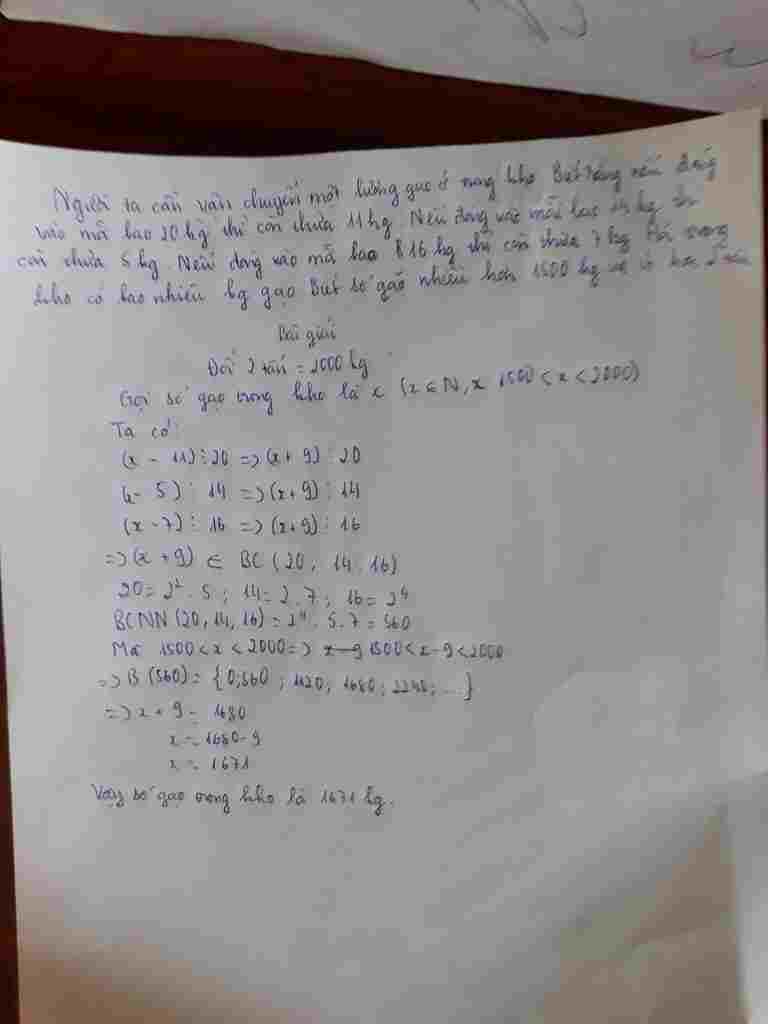 Người ta cần vận chuyển một lượng gạo ở trong kho Biết rằng nếu đóng
vào mỗi bao 20 kg thì còn thừa 11 kg. Nếu đóng vào mỗi bao 14 kg thì
còn thừa 5 kg. Nếu đóng vào mỗi bao 16 kg thì còn thừa 7 kg Hỏi trong
kho có bao nhiêu kg gạo Biết số gạo nhiều hơn 1500 kg và ít hơn 2 tấn
Bài giải
Đổi 2 tấn = 2000 kg
Gọi số gạo trong kho là x (x ∈ N, x 1500 < x < 2000)
Ta có:
(x - 11) ⋮ 20 => (x + 9) ⋮ 20
(x - 5) ⋮ 14 => (x + 9) ⋮ 14
(x - 7) ⋮ 16 => (x + 9) ⋮ 16
=> (x + 9) ∈ BC (20, 14, 16)
20 = 2² . 5 ; 14 = 2 . 7 ; 16 = 2⁴
BCNN (20, 14, 16) = 2⁴ . 5 . 7 = 560
Mà 1500 < x < 2000 => x - 9 1500 < x - 9 < 2000
=> B (560) = {0; 560 ; 1120; 1680; 2240; ...}
=> x + 9 = 1680
x = 1680 - 9
x = 1671
Vậy số gạo trong kho là 1671 kg.